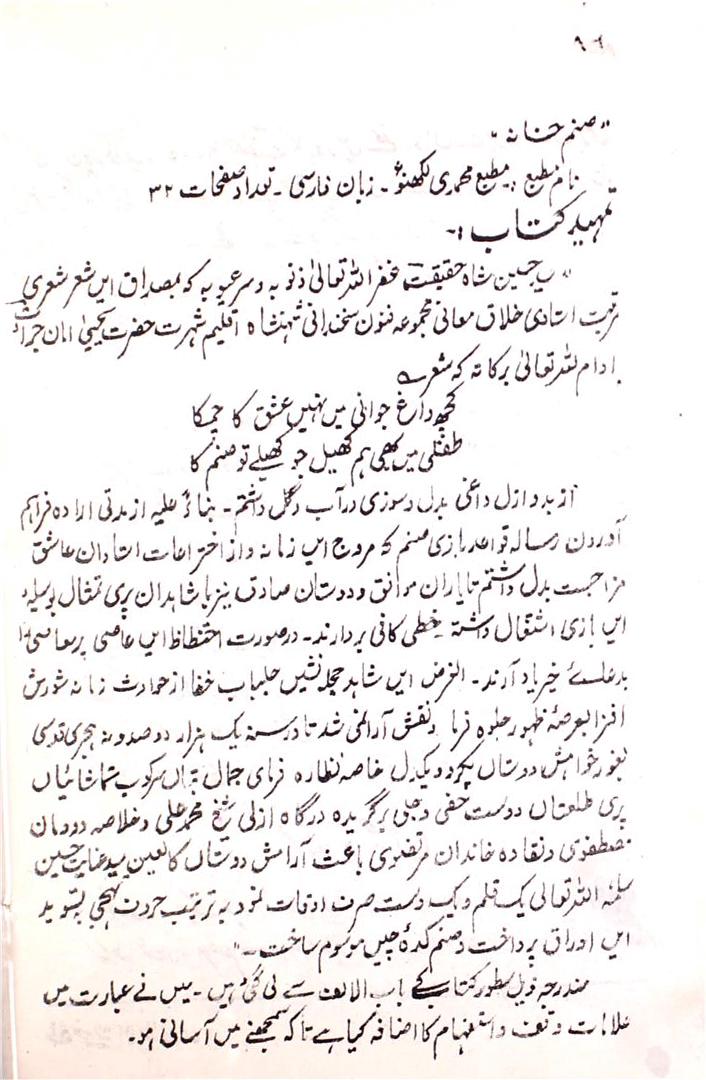 ۹۶
"صنم خانہ"
نام مطبع :۔ مطبع محمدی لکھنؤ ۔ زبان فارسی ۔ تعداد صفحات ۳۲
تمہید کتاب :۔
"سید حسین شاہ حقیقت غفر اللہ تعالیٰ ذنوبہ وسر عیوبہ کہ بمصداق ایں شعر شعری
مرتبت استادی خلاق معانی مجموعہ فنون سخندانی شہنشاہ اقلیم شہرت حضرت یحییٰ امان جرأت
ادام اللہ تعالیٰ برکاتہ کہ شعر
کچھ داغ جوانی میں نہیں عشق کا چمکا
طفلی میں بھی ہم کھیل جو کھیلے تو صنم کا
از بدو ازل داغی بدل و سوزی در آب و گل داشتم ۔ بناءً علیہ از مدتی ارادہ فراہم
آوردن رسالہ قواعد بازی صنم کہ مروج ایں زمانہ و از اختراعات استادان عاشق
مزاجست بدل داشتم تا یاران موافق و دوستان صادق نیز با شاہدان پری تمثال بوسیلہ
ایں بازی اشتغال داشتہ خطی کافی بردارند ۔ در صورت احتظاظ ایں عاصی پر معاصی را
بدعائے خیر یاد آرند ۔ الغرض ایں شاہد حجلہ نشیں جلباب خفا از حوادث زمانہ شورش
افزا بعرصۂ ظہور جلوہ فرما و نقش آرا نمی شد تا در سنہ یک ہزار دو صد و نہ ہجری قدسی
بغور خواہش دوستاں یکرو و یکدل خاصہ نظارہ فرمای جمال بتاں سرکوب تماشائیاں
پری طلعتاں دوست خفی و جلی برگزیدہ درگاہ ازلی شیخ محمد علی و خلاصہ دودمان
مصطفوی و نقادہ خاندان مرتضوی باعث آرامش دوستاں کالعین سید عنایت حسین
سلمہ اللہ تعالیٰ یک قلم و یک دست صرف اوقات نمود بہ ترتیب حروف تہجی بتسوید
ایں اوراق پرداخت و صنم کدۂ چیں موسوم ساخت ۔"
مندرجہ ذیل سطور کتاب کے باب الالف سے لی گئی ہیں ۔ میں نے عبارت میں
علامات وقف و استفہام کا اضافہ کیا ہے تاکہ سمجھنے میں آسانی ہو ۔